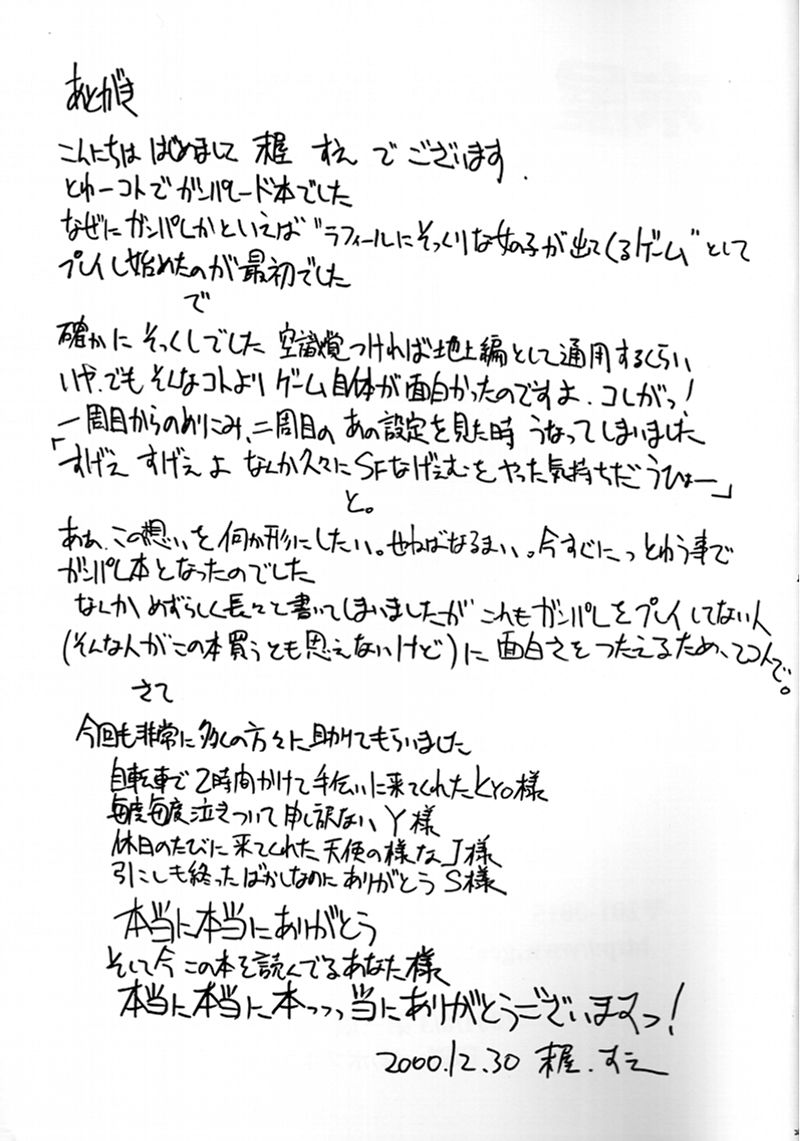 あとがき
こんにちは はじめまして 末屋 すえ でございます.
とゆーコトで ガンパレード本でした
なぜに ガンパレか といえば "ラフィールにそっくりな女の子が出てくるゲーム" として
プレイし始めたのが最初でした
で
確かに そっくしでした 空識覚つければ地上編として通用するくらい
いや.でも そんなコトより ゲーム自体が面白かったのですよ.コレがっ!
一周目からのめりこみ、二周目の あの設定を見た時 うなってしまいました
「すげぇ すげぇ よ なんか久々に SFなげぇむを やった気持ちだ うひょー」
と。
ああ、この想いを何か形にしたい。せねばなるまい。今すぐにっ とゆう事で
ガンパレ本となったのでした
なんか めずらしく長々と書いてしまいましたが これもガンパレをプレイしてない人
(そんな人が この本買うとも思えないけど)に 面白さを つたえるため、ってコトで。
さて
今回も非常に多くの方々に助けてもらいました
自転車で 2時間かけて手伝いに来てくれた Kyo様
毎度毎度泣きついて 申し訳ない Y様
休日のたびに来てくれた 天使の様な J様
引こしも終ったばかしなのに ありがとう S様
本当に本当にありがとう
そして今 この本を読んでるあなた様
本当に本当に本っっっ当にありがとうございますっ!
2000.12.30 末屋.すえ